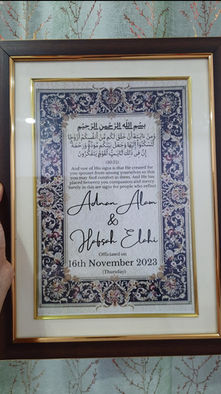 بسم الله الرحمن الرحيم
وَمِنْ آيَاتِهِ أَنْ خَلَقَ لَكُم مِّنْ أَنفُسِكُمْ أَزْوَاجًا
لِّتَسْكُنُوا إِلَيْهَا وَجَعَلَ بَيْنَكُم مَّوَدَّةً وَرَحْمَةً
إِنَّ فِي ذَٰلِكَ لَآيَاتٍ لِّقَوْمٍ يَتَفَكَّرُونَ
(30:21)
And one of His signs is that He created for
you spouses from among yourselves so that
you may find comfort in them. And He has
placed between you compassion and mercy.
Surely in this are signs for people who reflect
Adnan Alam
&
Habsah Elahi
Officiated on
16th November 2023
(Thursday)